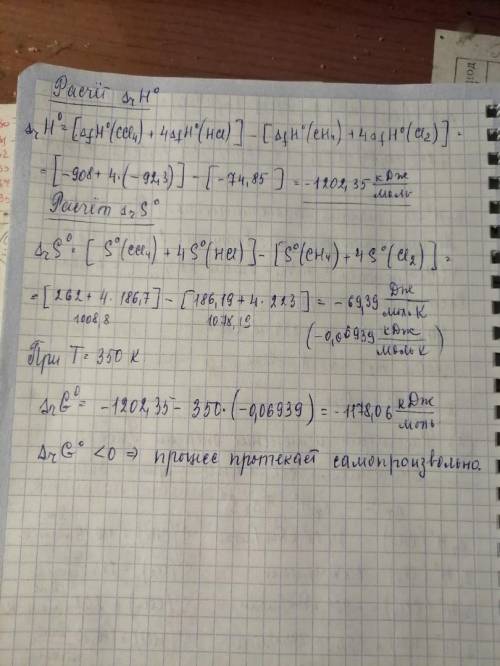 Расчёт ΔrH°
ΔrH° = [ΔfH°(CCl₄) + 4ΔfH°(HCl)] - [ΔfH°(CH₄) + 4ΔfH°(Cl₂)] =
= [-908 + 4·(-92,3)] - [-74,85] = -1202,35 кДж/моль
Расчёт ΔrS°
ΔrS° = [S°(CCl₄) + 4S°(HCl)] - [S°(CH₄) + 4S°(Cl₂)] =
= [262 + 4·186,7] - [186,19 + 4·223] = -69,39 Дж/моль К
1008,8 1078,19 (-0,06939 кДж/моль К)
При T = 350 К
ΔrG° = -1202,35 - 350·(-0,06939) = -1178,06 кДж/моль
ΔrG° < 0 ⇒ процесс протекает самопроизвольно.